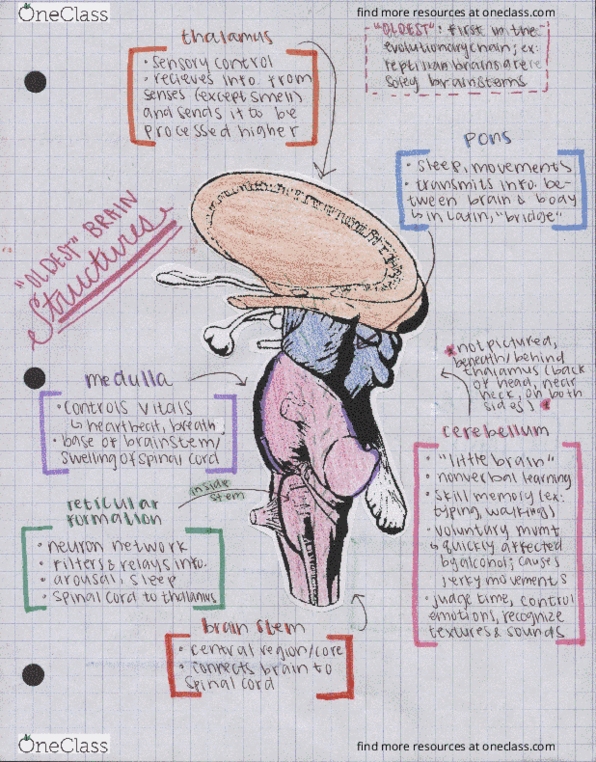 OneClass
find more resources at oneclass.com
thalamus
• sensory control
• recieves info. from
senses (except smell)
and sends it to be
processed higher
"OLDEST": first in the
evolutionary chain; ex:
reptilian brains are
soley brainstems
pons
• sleep, movements
• transmits info. be-
tween brain & body
↳ in Latin, "bridge"
"OLDEST" BRAIN
Structures
*not pictured,
beneath/behind
thalamus (back
of head, near
neck, on both
sides)*
medulla
• controls vitals
↳ heartbeat, breath
• base of brainstem/
swelling of spinal cord
cerebellum
• "little brain"
• nonverbal learning
• skill memory (ex:
typing, walking)
• voluntary mvmt
↳ quickly affected
by alcohol; causes
jerky movements
• judge time, control
emotions, recognize
textures & sounds
reticular
formation
inside
stem
• neuron network
• filters & relays info.
• arousal, sleep
• spinal cord to thalamus
brain stem
• central region/core
• connects brain to
spinal cord
OneClass
find more resources at oneclass.com